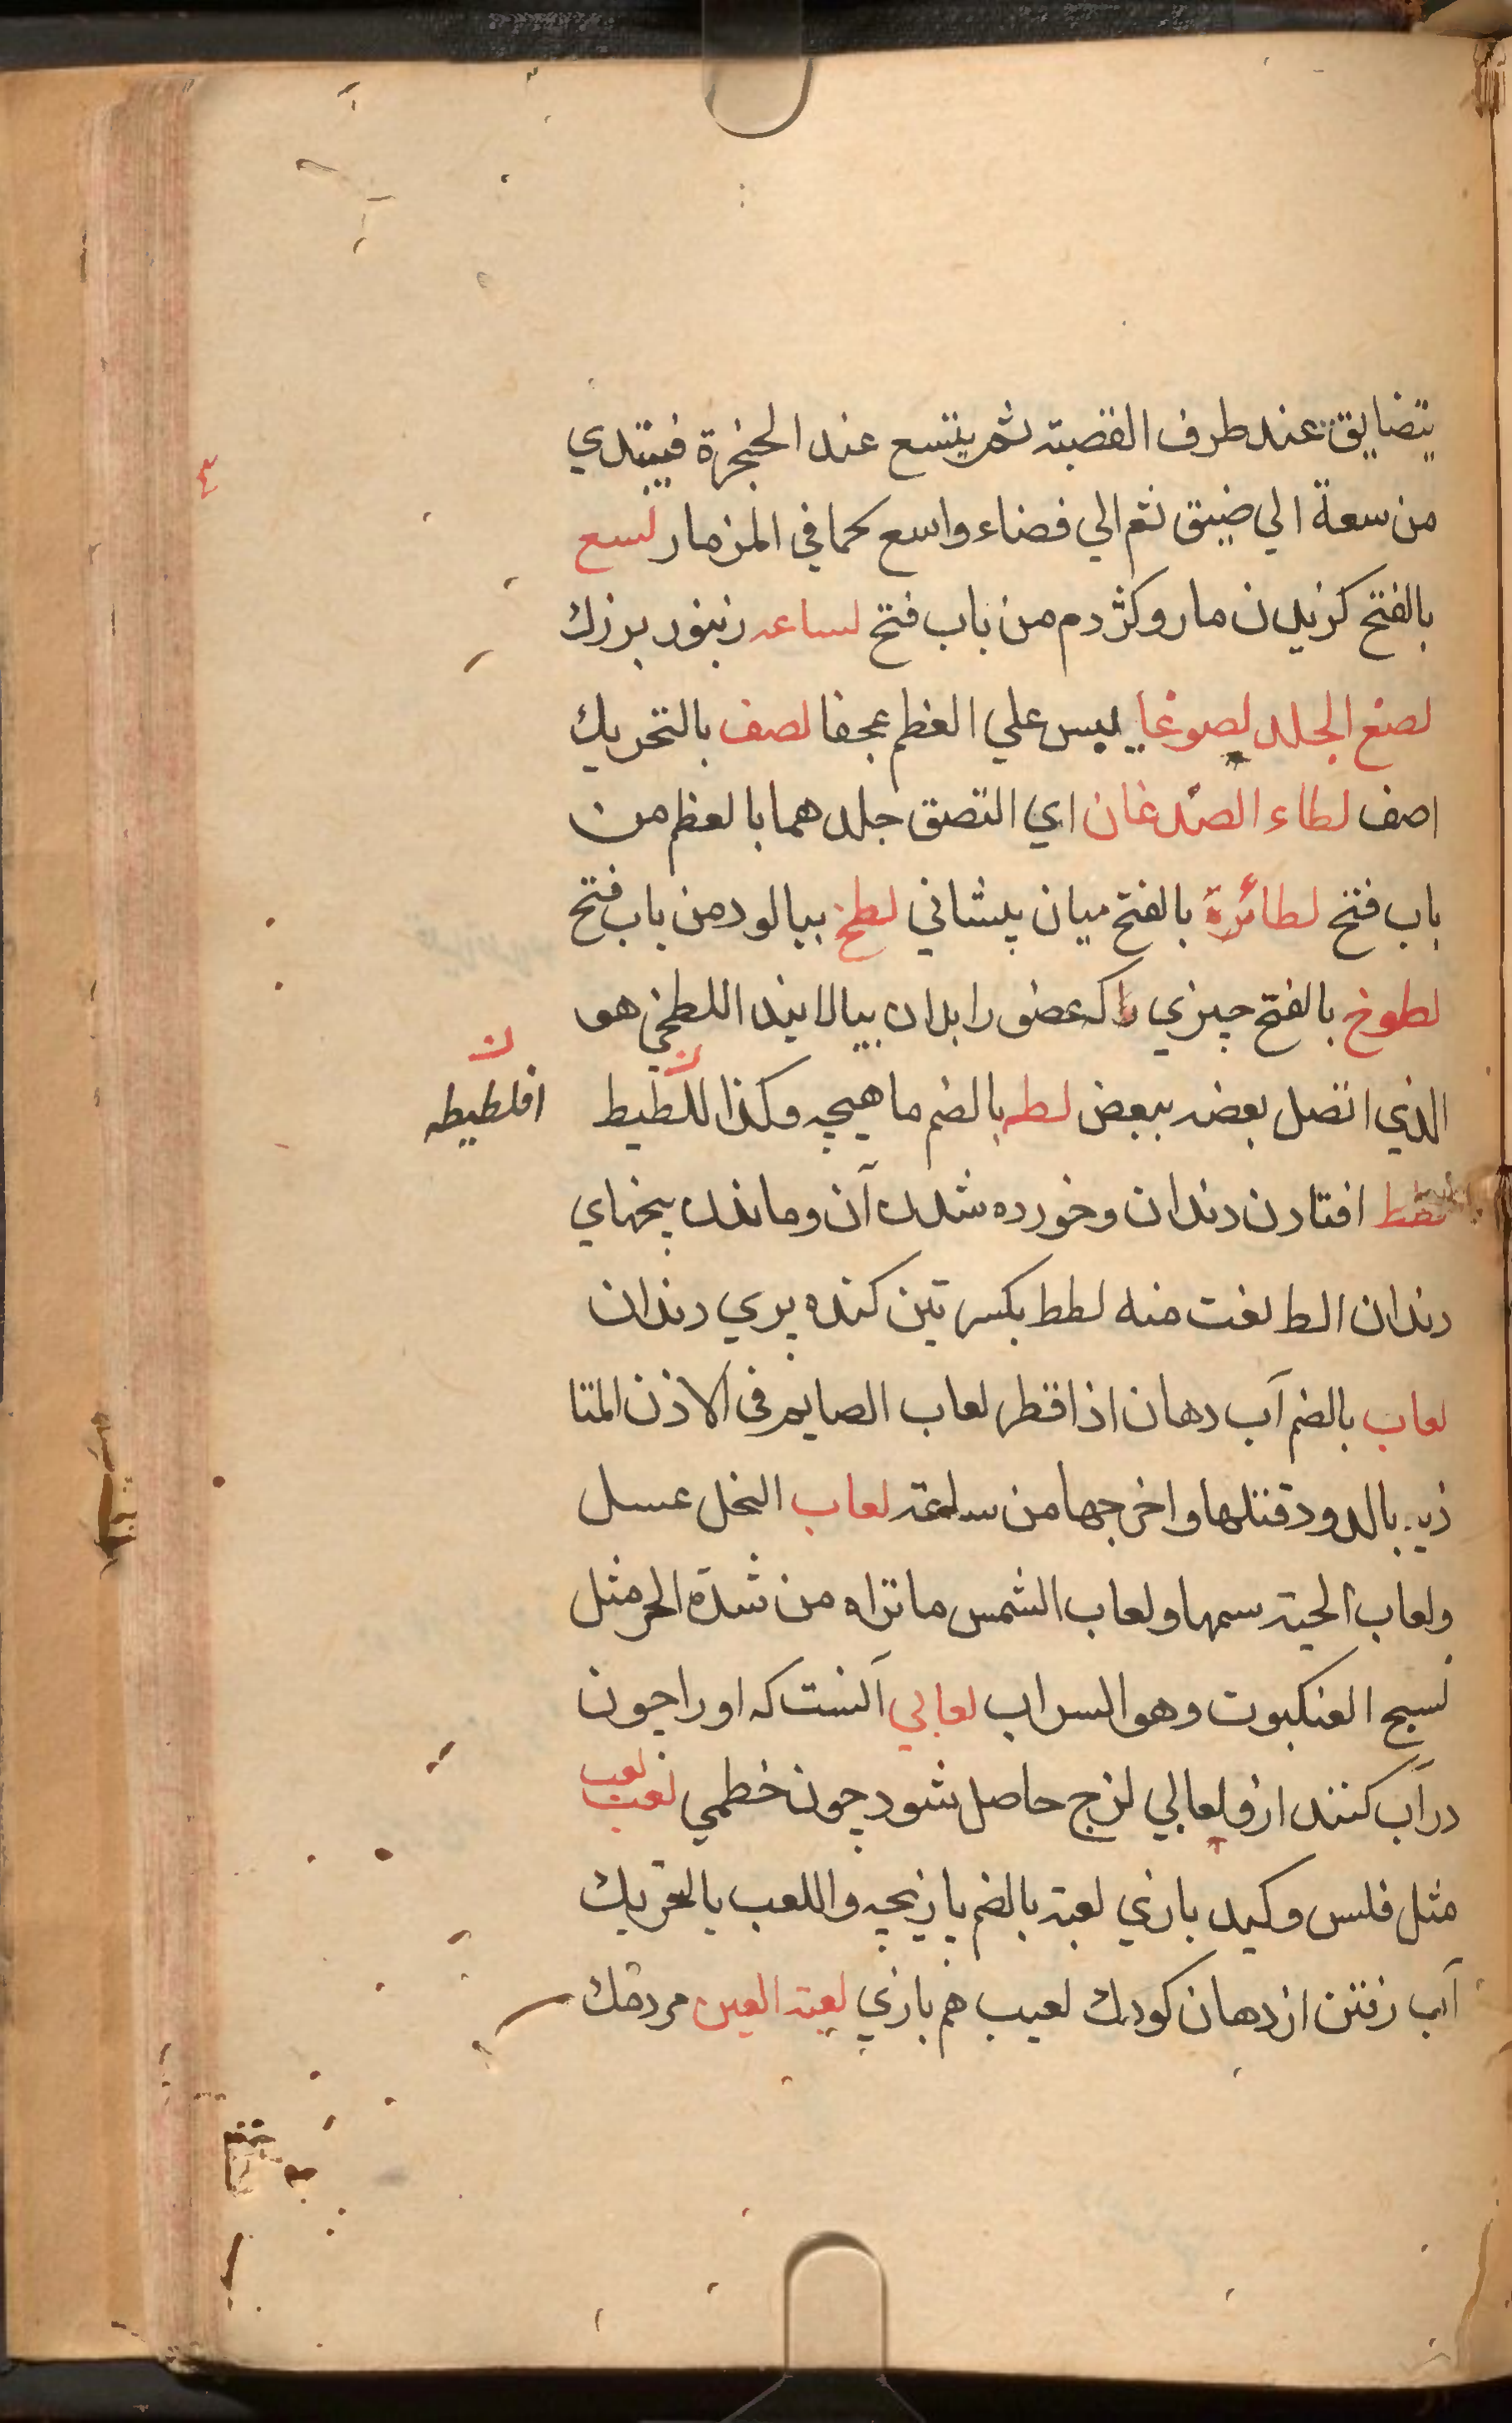 يتضايق عند طرف القصبة ثم يتسع عند الحنجرة فيبتدي
من سعة الي ضيق ثم الي فضاء واسع كما في المزمار لسع
بالفتح كزيدن مار وكژدم من باب فتح لساعه زنبور بزرك
لصغ الجلد لصوغا يبس علي العظم عجفا لصف بالتحريك
اصف لطاء الصدغان اي التصق جلدهما بالعظم من
باب فتح لطائرة بالفتح ميان پيشاني لطخ بيالود من باب فتح
لطوخ بالفتح چيزي كه عضو را بدان بيالايند اللطخي هو
الذي اتصل بعضه ببعض لطه بالضم ماهيچه وكذا اللطيط
افلطيطه
لطط افتادن دندان وخورده شدن آن وماندن بيخهاي
دندان الط لغت منه لطط بكسرتين كنده پري دندان
لعاب بالضم آب دهان اذا قطر لعاب الصايم في الاذن المتا
ذيه بالدود قتلها واخرجها من ساعته لعاب النحل عسل
ولعاب الحية سمها ولعاب الشمس ما تراه من شدة الحر مثل
نسج العنكبوت وهو السراب لعابي آنست كه اورا چون
در آب كنند ازو لعابي لزج حاصل شود چون خطمي لعب
لعب
مثل فلس وكبد بازي لعبة بالضم بازيچه واللعب بالتحريك
آب رفتن از دهان كودك لعيب هم بازي لعبة العين مردمك